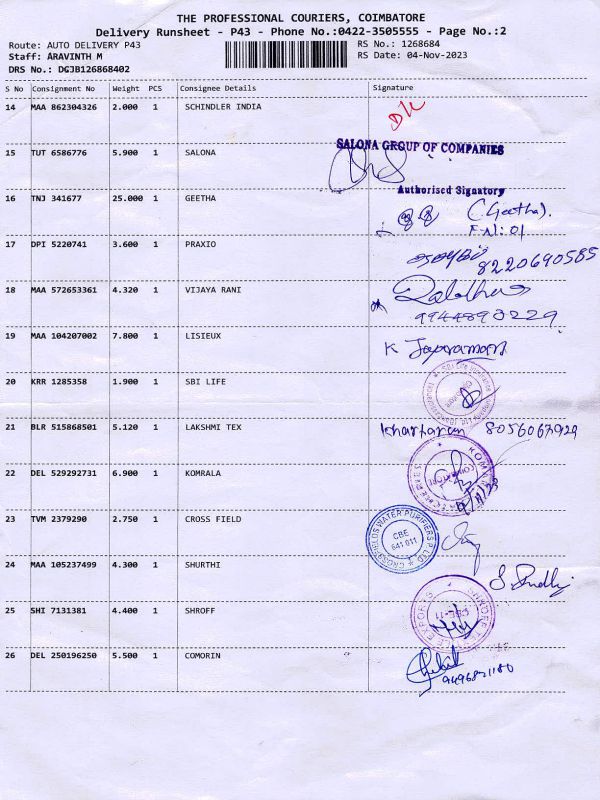 THE PROFESSIONAL COURIERS, COIMBATORE
Delivery Runsheet - P43 - Phone No.:0422-3505555 - Page No.:2
Route: AUTO DELIVERY P43 RS No.: 1268684
Staff: ARAVINTH M RS Date: 04-Nov-2023
DRS No.: DCJB126868402
S No Consignment No Weight PCS Consignee Details Signature
14 MAA 862304326 2.000 1 SCHINDLER INDIA
SALONA GROUP OF COMPANIES
15 TUT 6586776 5.900 1 SALONA
Authorised Signatory
16 TNJ 341677 25.000 1 GEETHA (Geetha).
F.N: 01
17 DPI 5220741 3.600 1 PRAXIO
8220690585
18 MAA 572653361 4.320 1 VIJAYA RANI
9944893229
19 MAA 104207002 7.800 1 LISIEUX K Jayaraman
20 KRR 1285358 1.900 1 SBI LIFE
21 BLR 515868501 5.120 1 LAKSHMI TEX 8056067929
22 DEL 529292731 6.900 1 KOMRALA
23 TVM 2379290 2.750 1 CROSS FIELD CROSSFIELDS WATER PURIFIERS P LTD CBE 641 011
24 MAA 105237499 4.300 1 SHURTHI
25 SHI 7131381 4.400 1 SHROFF
26 DEL 250196250 5.500 1 COMORIN